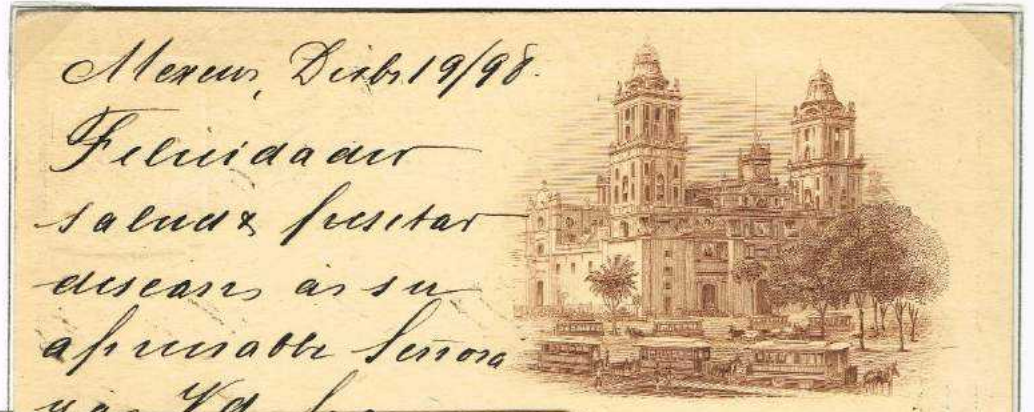 Mexico, Dicbr 19/98.
Felicidades
salud & pesetas
desean á su
apreciable Señora
y á Vd